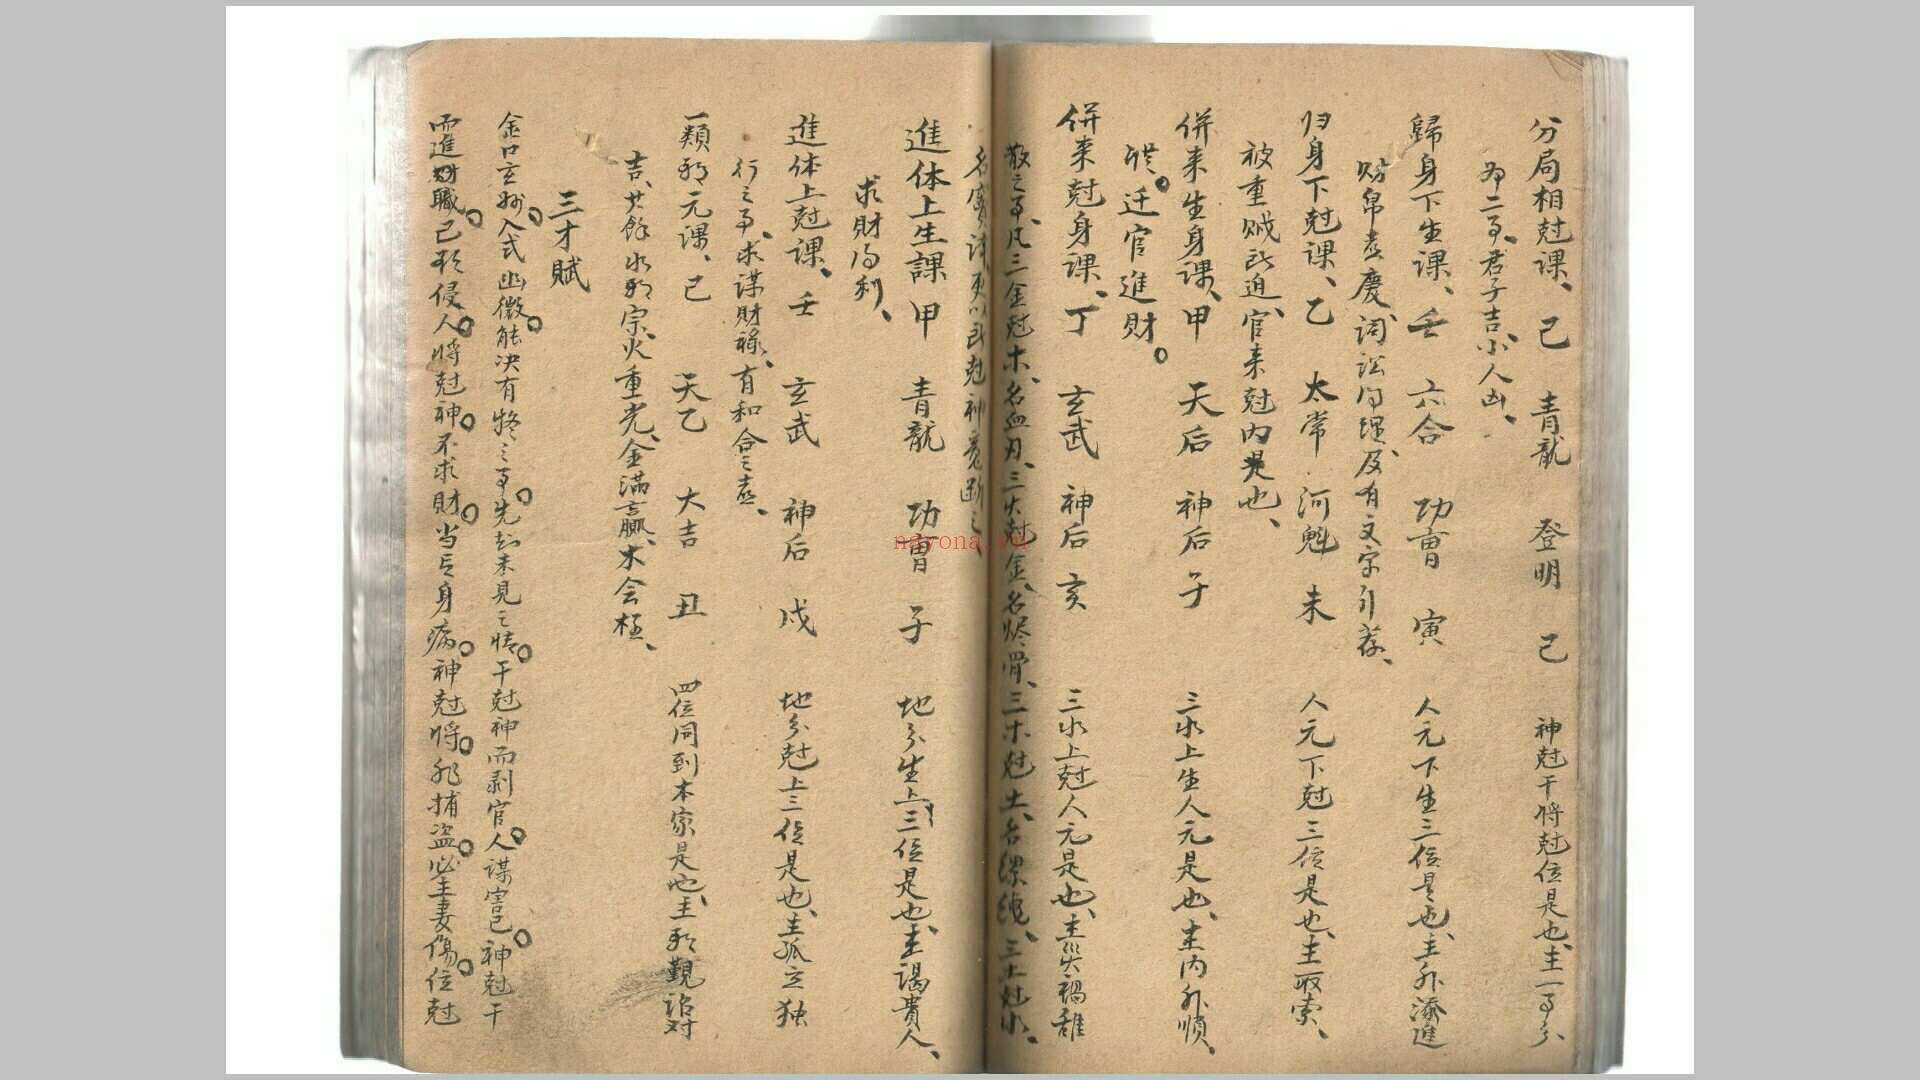 分局相尅課、己 青龍 登明 己 神尅干將尅位是也、主一事分
为二事、君子吉、小人凶、
歸身下生课、壬 六合 功曹 寅 人元下生三位是也、主外添進
财帛喜慶、词讼得理、及有文字引荐、
归身下尅课、乙 太常 河魁 未 人元下尅三位是也、主取索、
被重贼所迫、官来尅内是也、
併来生身课、甲 天后 神后 子 三水上生人元是也、主内外順、
迁官進財。
併来尅身课、丁 玄武 神后 亥 三水上尅人元是也、主災禍離
散之事、凡三金尅木、名血刃、三火尅金、名烬骨、三木尅土、名缧绁、三土尅水、
名 神 断之
進体上生課 甲 青龍 功曹 子 地分生上三位是也、主謁貴人、
求財得利、
進体上尅课、壬 玄武 神后 戌 地分尅上三位是也、主孤立独
行之事、求謀財禄、有和合之喜、
類形元课、己 天乙 大吉 丑 四位同到本家是也、主形觐诏对
吉、其餘水形宗、火重光、金滿贏、木会极、
三才賦
金口玄妙。入式幽微。能决有疑之事。先知未見之情。干尅神而剥官。人謀害己。神尅干
而進職。己欲侵人。將尅神。不求財。当忌身病。神尅將。非捕盗。必主妻傷。位尅
nayona.cn